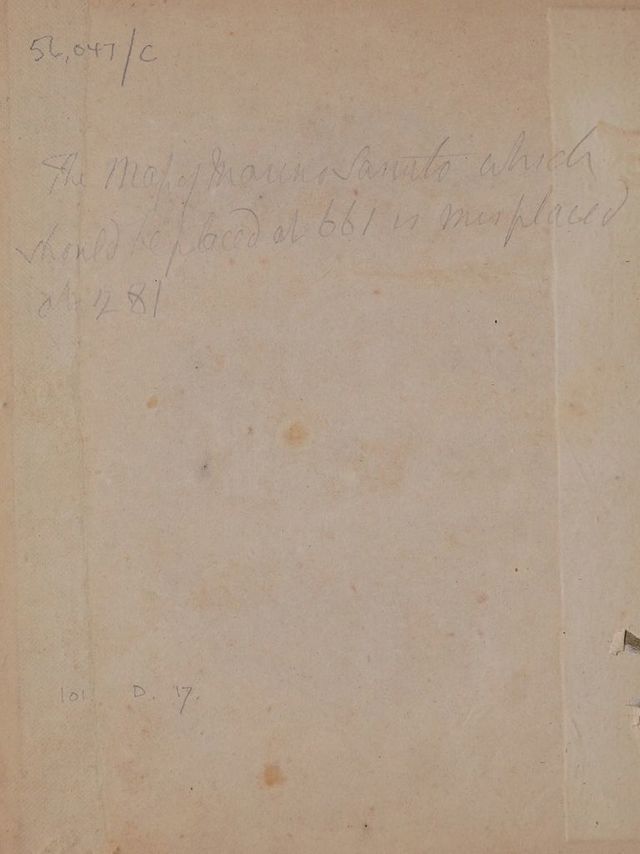 56,047/C
The Map of Marino Sanuto which
should be placed at 661 is misplaced
at 281
101 D. 17.